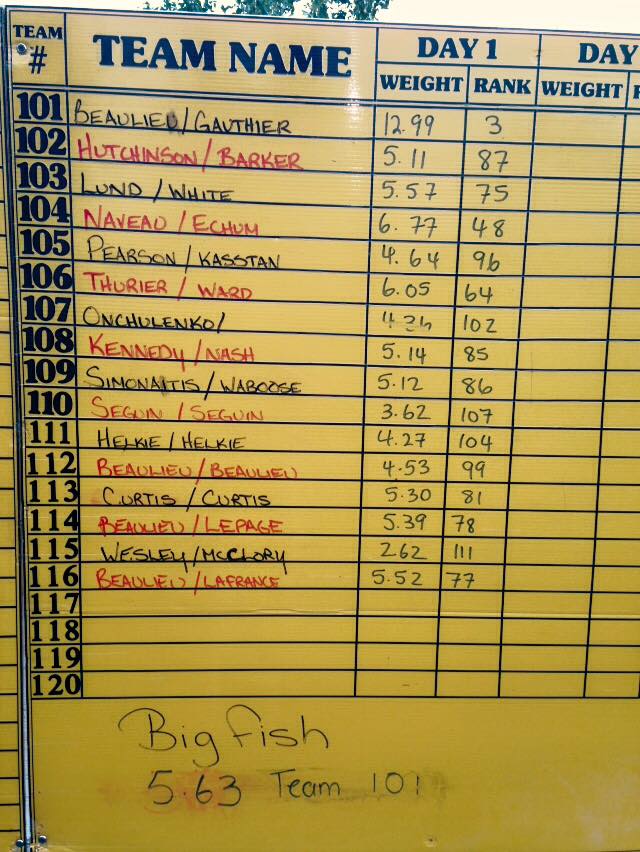 TEAM # TEAM NAME DAY 1 DAY
WEIGHT RANK WEIGHT
101 BEAULIEU/GAUTHIER 12.99 3
102 HUTCHINSON/BARKER 5.11 87
103 LUND/WHITE 5.57 75
104 NAVEAU/ECHUM 6.77 48
105 PEARSON/KASSTAN 4.64 96
106 THURIER/WARD 6.05 64
107 ONCHULENKO/ 102
108 KENNEDY/NASH 5.14 85
109 SIMONAITIS/WABOOSE 5.12 86
110 SEGUIN/SEGUIN 3.62 107
111 HELKIE/HELKIE 4.27 104
112 BEAULIEU/BEAULIEU 4.53 99
113 CURTIS/CURTIS 5.30 81
114 BEAULIEU/LEPAGE 5.39 78
115 WESLEY/MCCLORY 2.62 111
116 BEAULIEU/LAFRANCE 5.52 77
117
118
119
120
Big Fish
5.63 Team 101